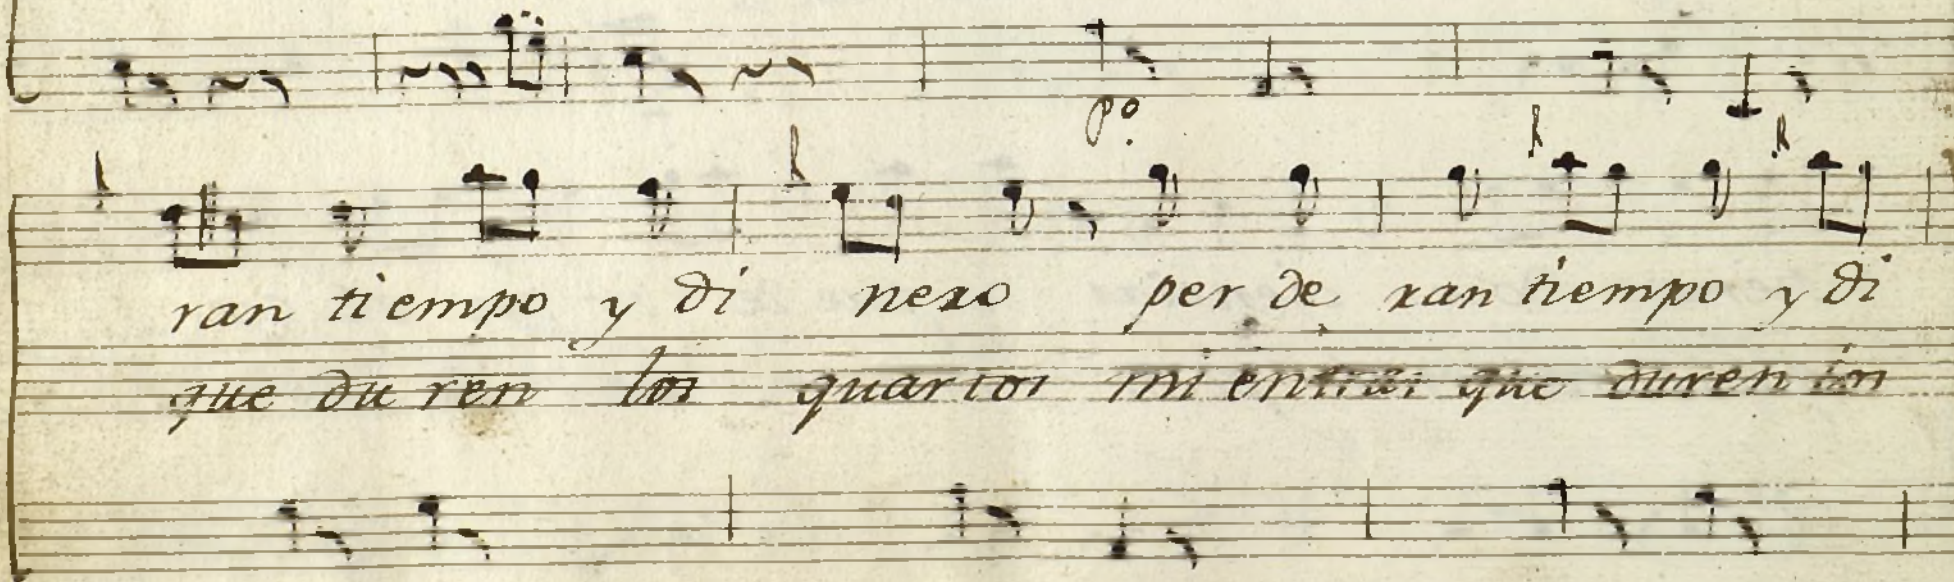 po.
ran tiempo y di nero per de ran tiempo y di
que du ren los quartos mi entras que duren los